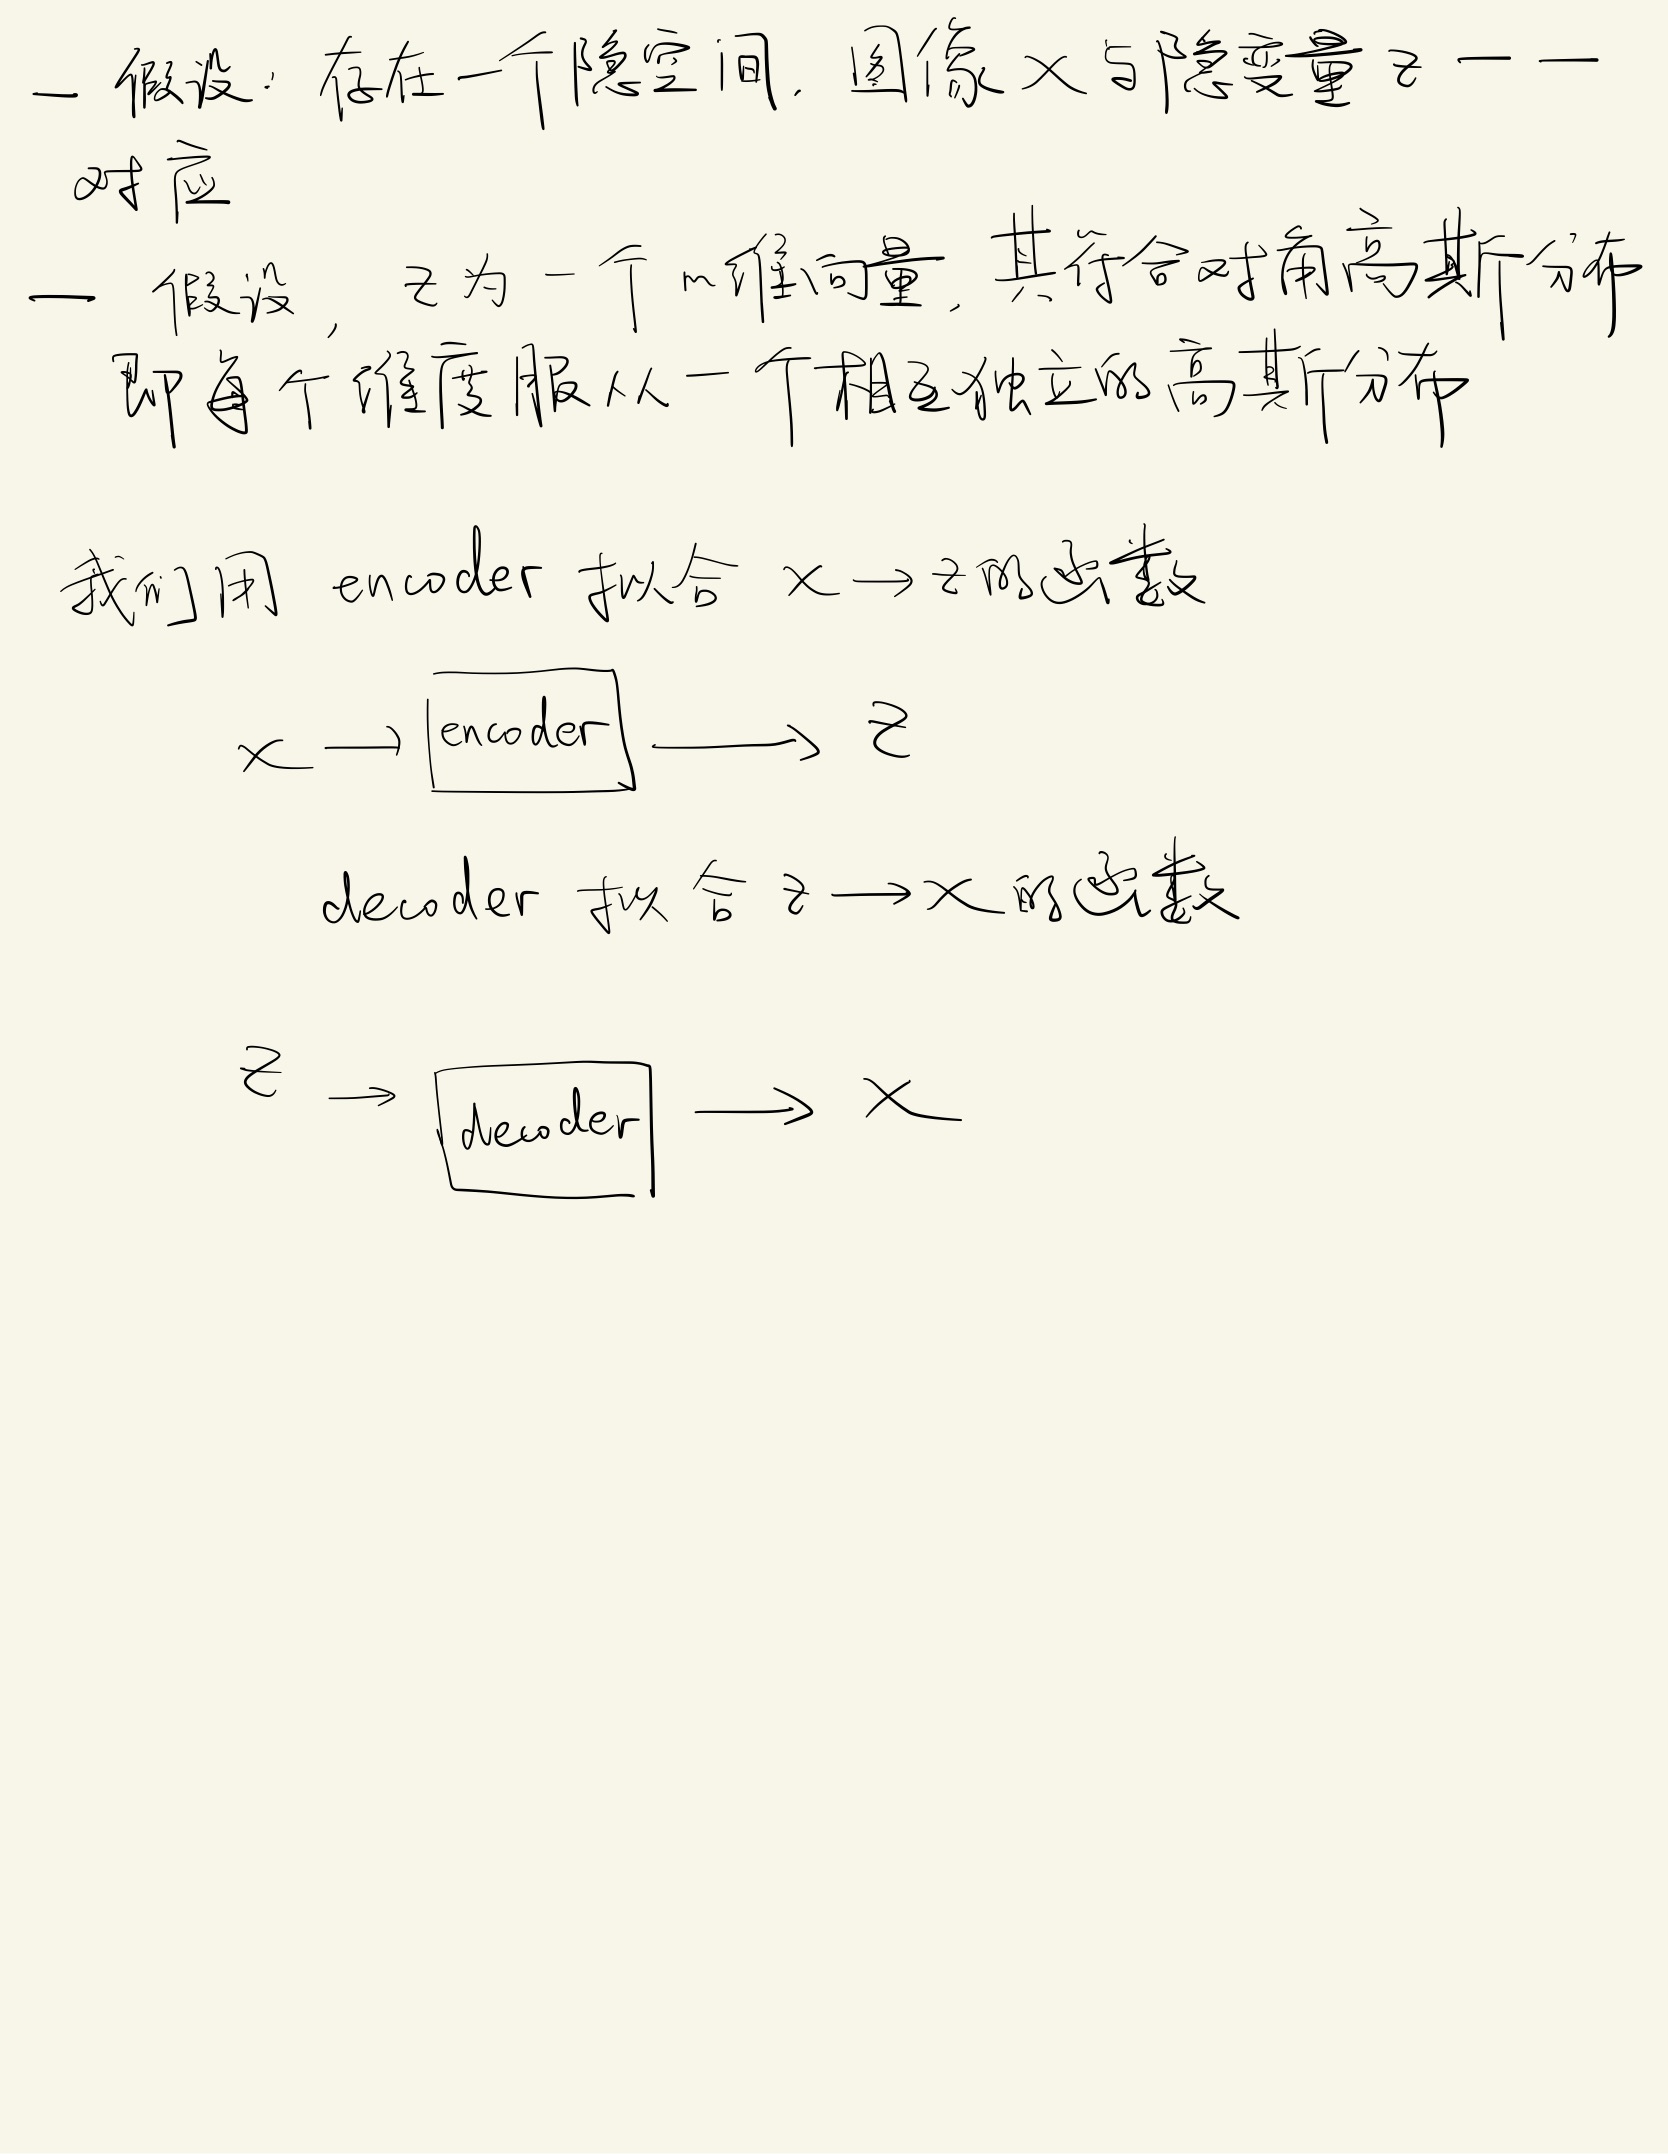 - 假设: 存在一个隐空间, 图像 x 与隐变量 z 一一
对应
- 假设, z 为一个 m维向量, 其符合对角高斯分布
即每个维度服从一个相互独立的高斯分布
我们用 encoder 拟合 x → z 的函数
x → encoder → z
decoder 拟合 z → x 的函数
z → decoder → x